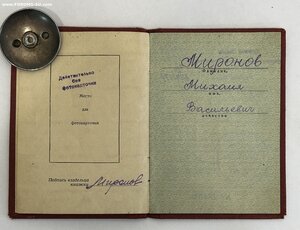 Действительно
без
фотокарточки
Место
для
фотокарточки
Подпись владельца
книжки
Миронов
Миронов
Фамилия
Михаил
имя
Васильевич
отчество